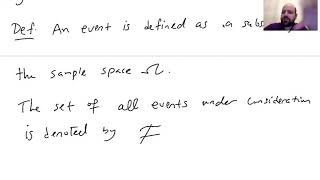 Def. An event is defined as a subs
the sample space Ω.
The set of all events under consideration
is denoted by F